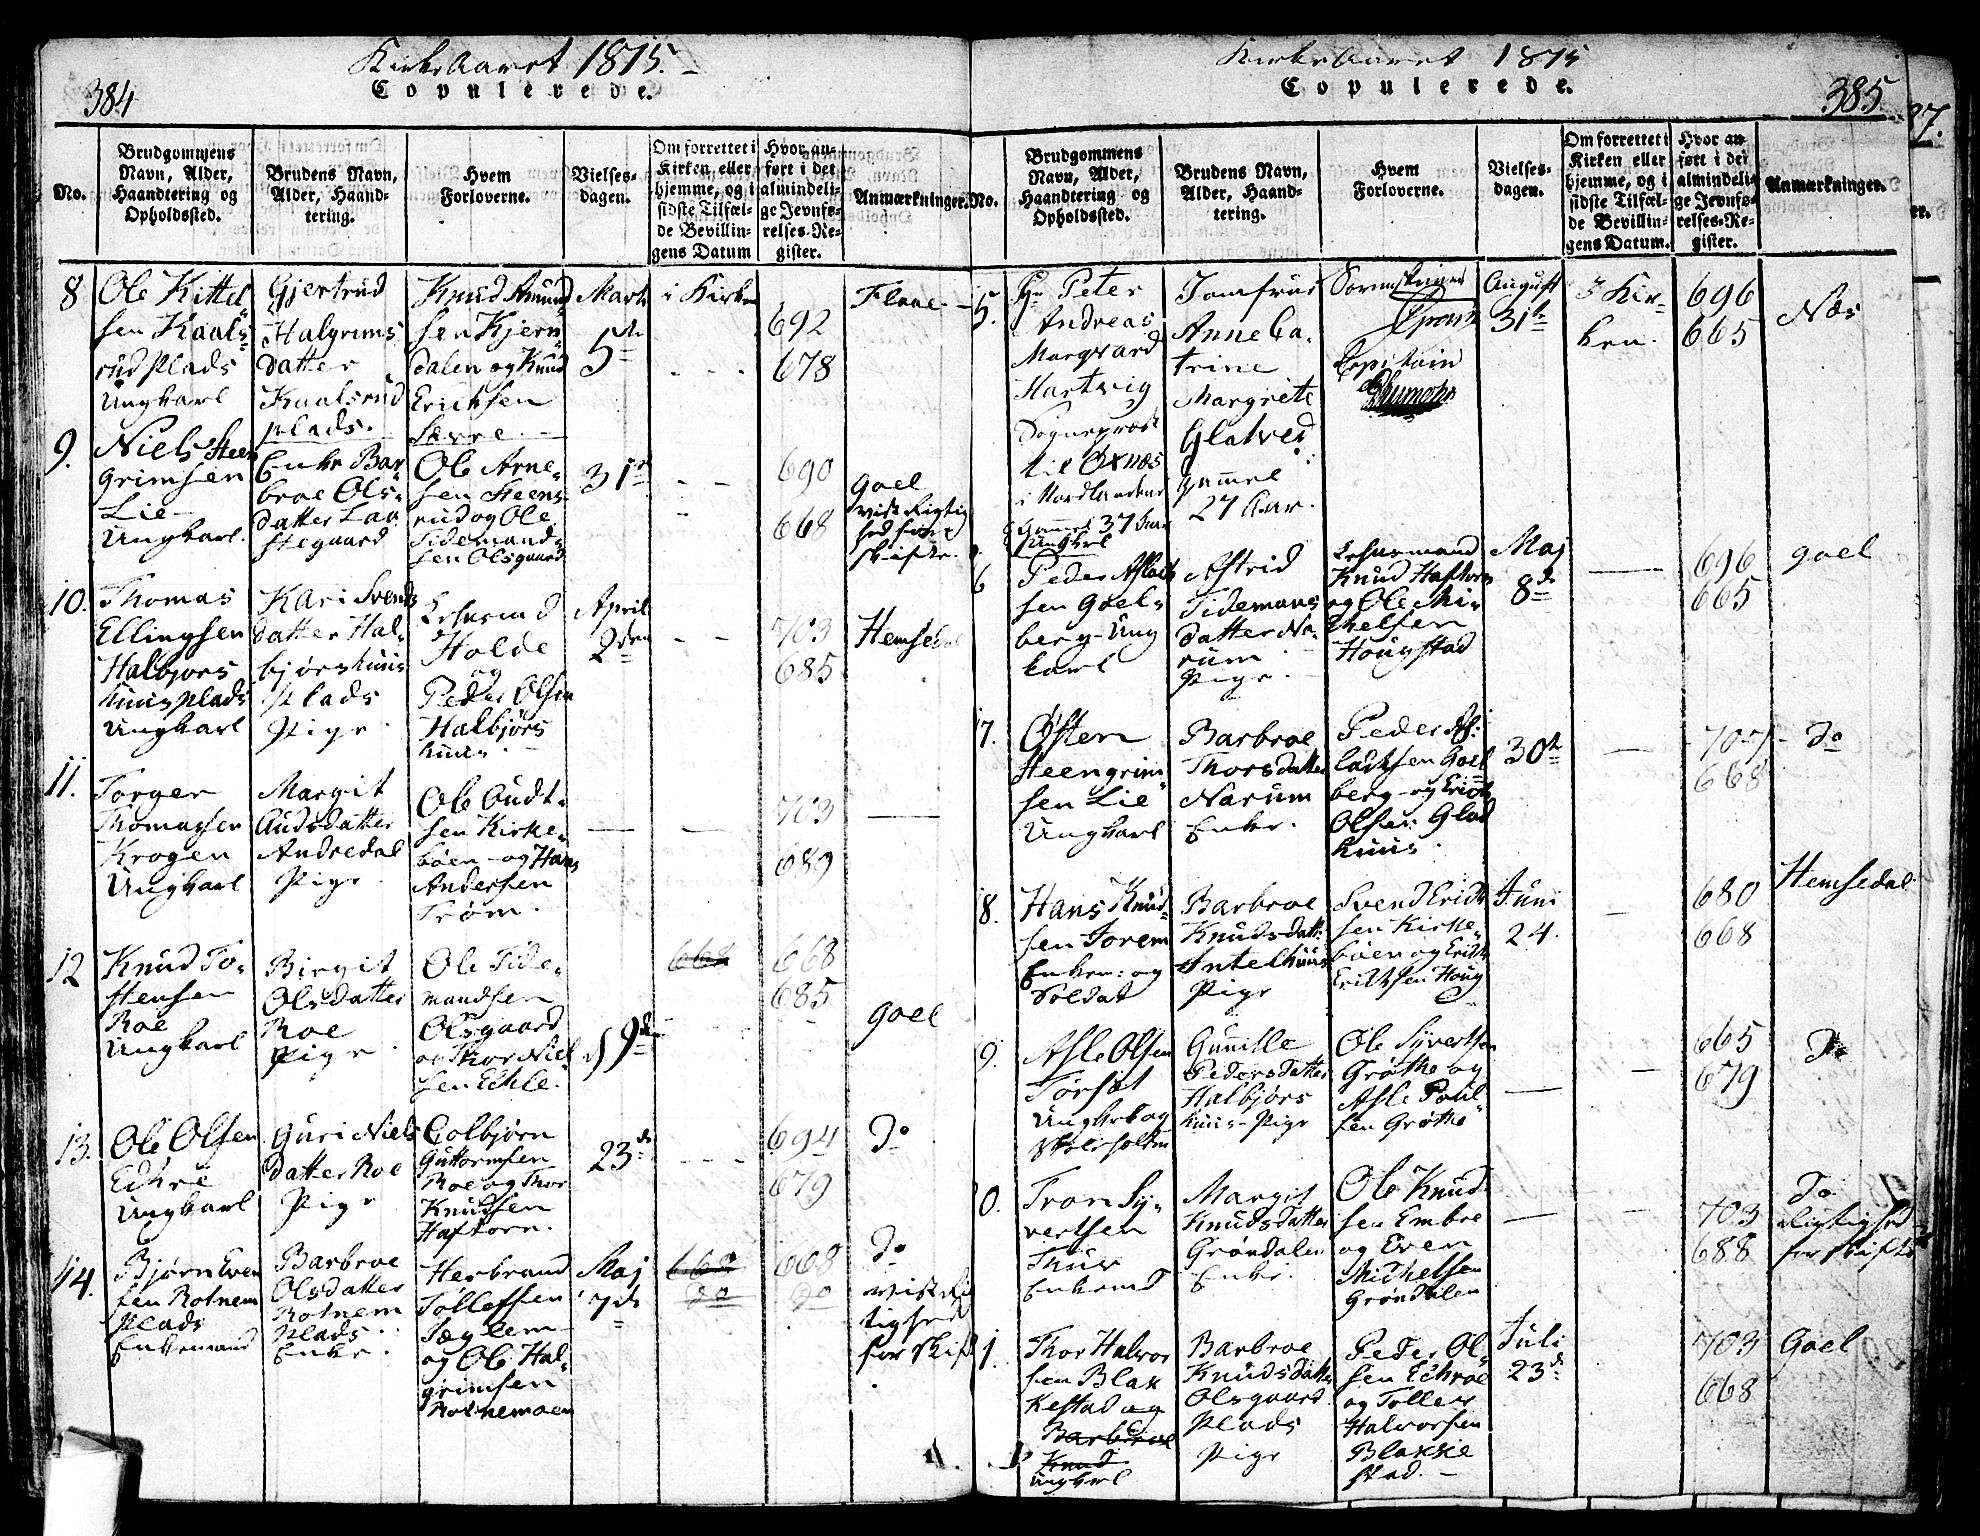 Kirke Aaret 1815.
384
Copulerede.
No.
Brudgommens
Navn, Alder,
Haandtering og
Opholdssted.
Brudens Navn,
Alder, Haand-
tering.
Hvem
Forloverne.
Vielses-
dagen.
Om forrettet i
Kirken eller
hjemme, og i
sidste Tilfæl-
de Bevillin-
gens Datum
Hvor an-
ført i det
almindeli-
ge Jevnfø-
relses-Re-
gister.
Anmærkninger.
8
Ole Kittel
sen Kaals-
rud plads
Ungkarl
Gjertrud
Halgrims
datter
Kaalsrud
plads.
Knud Amund
sen Kjern
dalen og Knud
Ericksen
Marts
5te
i Kirke
692
678
Flaae
9.
Niels Steen
grimsen
Lie
Ungkarl.
Enke Bar
broe Ols-
datter Laa
stegaard
Ole Arne-
sen Steens-
rud og Ole
Tidemand-
sen Olsgaard
31te
690
668
Goel
10.
Thomas
Ellingsen
Halbjørs
huus plads
Ungkarl
Kari Svends
datter Hal-
bjørshuus
Plads
Pige
Holde
og
Peder Olsen
Halbjørs
huus.
April
2den
703
685
Hemsedal
11.
Torger
Thomassen
Krogen
Ungkarl
Margit
Audsdatter
Andredal
Pige
Ole Oudt-
sen Kirke-
bøen og Hans
Andersen
Trøm.
703
689
12
Knud To-
stensen
Roe
Ungkarl
Birgit
Olsdatter
Roe
Pige
Ole Tide-
mandsen
Olsgaard
og Thor Niel
sen Eckle.
9de
668
668
685
Goel
13.
Ole Olsen
Eckre
Ungkarl
Guri Niels
datter Roe
Pige
Golbjørn
Guttormsen
Roe og Thor
Knudsen
Haftorn.
23de
694
679
Do
14.
Bjørn Even
sen Rotnem
plads
Enkemand
Barbroe
Olsdatter
Rotnem
plads.
Enke.
Herbrand
Tollefsen
Sæglem
og Ole Hal-
grimsen
Rotnemoen
Maj
7de
668
do
668
do
Do
for Skift
Kirke Aaret 1815
385
Copulerede.
No.
Brudgommens
Navn, Alder,
Haandtering og
Opholdssted.
Brudens Navn,
Alder, Haand-
tering.
Hvem
Forloverne.
Vielses-
dagen.
Om forrettet i
Kirken eller
hjemme, og i
sidste Tilfæl-
de Bevillin-
gens Datum.
Hvor an-
ført i det
almindeli-
ge Jevnfø-
relses-Re-
gister.
Anmærkninger.
5.
Hr Peter
Andreas
Marqvard
Hartvig
Sognepræst
til Øxnæs
i Nordlandene
gammel 37 Aar
Ungkarl
Jomfrue
Anne Ca-
trine
Margrete
Glatved
gammel
27 Aar.
Sorenskriver
Capitain
August
31te
i Kir-
ken.
696
665
Næs
6
Peder Aslack
sen Goel-
berg - Ung
karl
Astrid
Tidemans
datter Na-
rum
Pige.
Lehnsmand
Knud Haftorn
og Ole Mi-
chelsen
Hougstad
Maj
8de
696
665
Goel
7.
Østen
Steengrim
sen Lie
Ungkarl
Barbroe
Thorsdatter
Narum
Enke.
Peder As-
lacksen Goel
berg og Erick
Olsen Glad
huus.
30te
707
668
Do
8.
Hans Knud-
sen Torem
Enkem: og
Soldat
Barbroe
Knudsdatt:
Intelhuus
Pige
Svend Erick
sen Kirke-
bøen og Erick
Ericksen Houg
Juni
24.
680
668
Hemsedal
9.
Asle Olsen
Torset
Gunille
Pedersdatter
Halbjørs
huus - Pige
Ole Syvertsen
Grøthe og
Asle Poul
sen Grøthe
665
679
Do
0.
Tron Sy-
vertsen
Thuv
Enkemd
Margit
Knudsdatter
Grøndalen
Enke.
Ole Knud
sen Embre
og Even
Michelsen
Grøndalen
703
688
Do
Rigtighed
for Skifte
1.
Thor Halvor
sen Blak
kestad og
Barbroe
Knud
Ungkarl
Barbroe
Knudsdatter
Olsgaard
Plads
Pige
Peder Ol-
sen Eckroe
og Tollev
Halvorsen
Blakke
stad.
Juli
23de
703
668
Goel